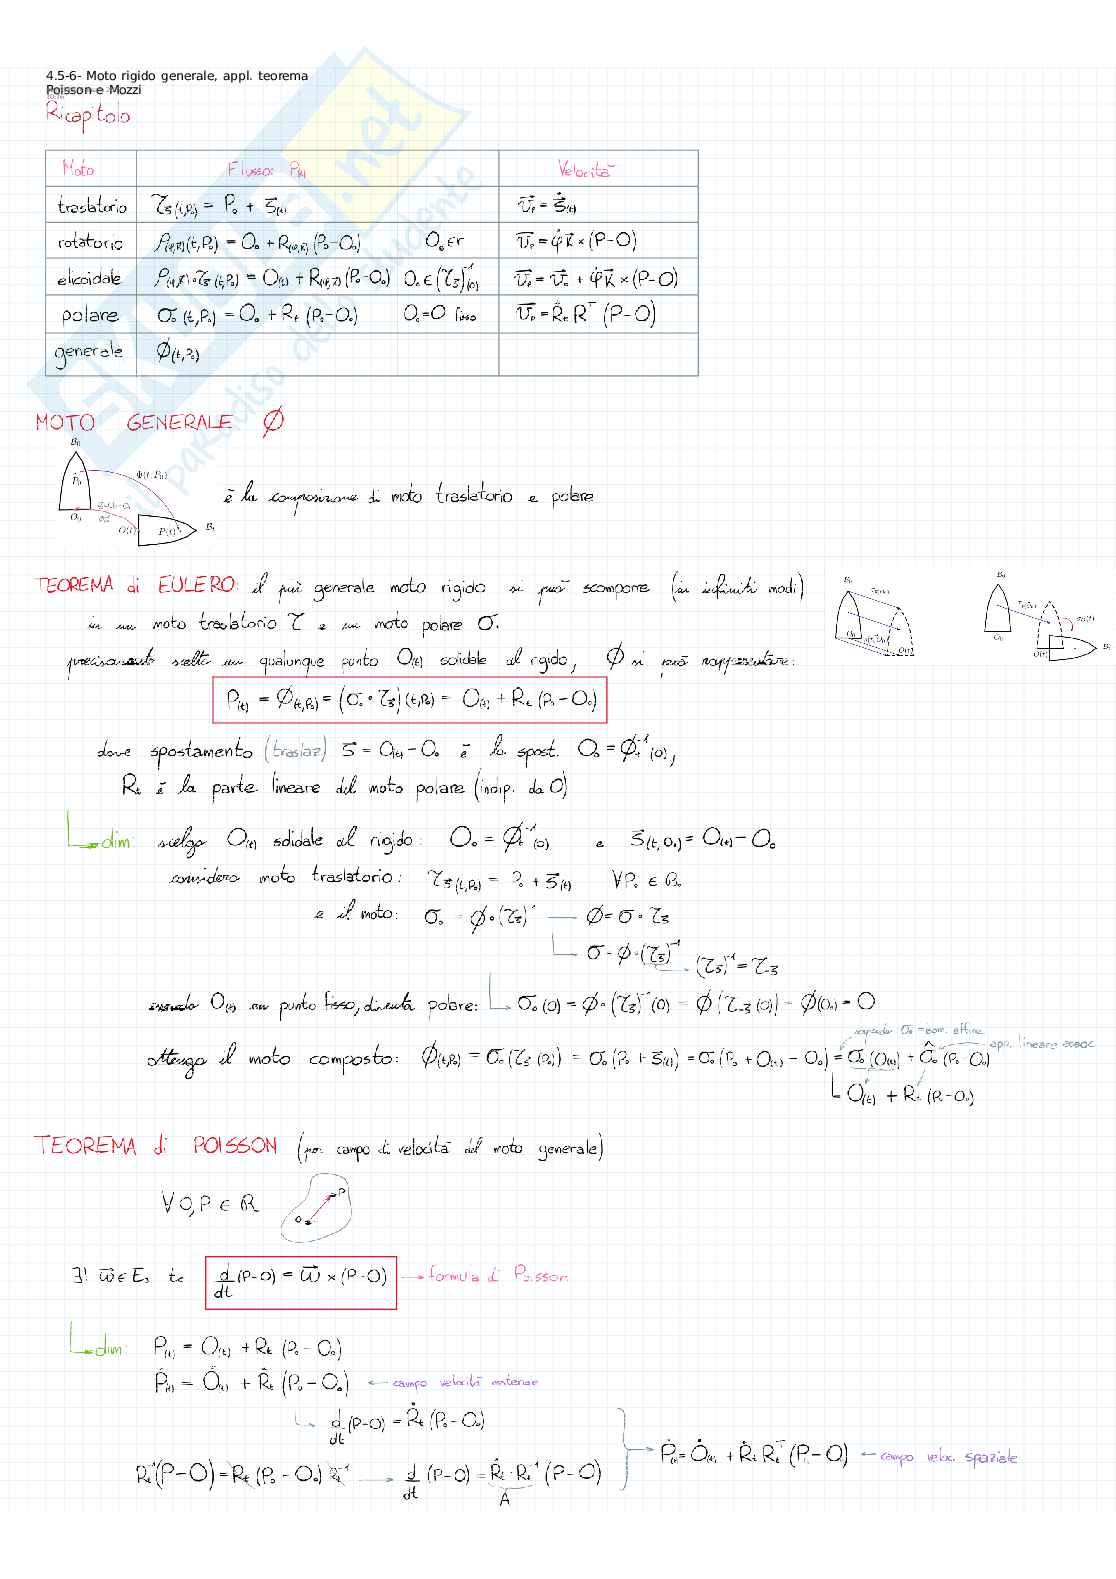 4.5-6- Moto rigido generale, appl. teorema
Poisson e Mozzi
Ricapitolo
Moto Flusso: P(t) Velocità
traslatorio τ_ξ(t,P₀) = P₀ + ξ⃗(t) v⃗_P = ξ⃗̇(t)
rotatorio ρ(φ,k)(t,P₀) = O₀ + R(φ,k)(P₀-O₀) O₀ ∈ r v⃗_P = φ̇ k⃗ × (P-O)
elicoidale ρ(φ,k)∘τ_ξ(t,P₀) = O(t) + R(φ,k)(P₀-O₀) O₀ ∈ (τ_ξ)⁻¹(O) v⃗_P = v⃗₀ + φ̇ k⃗ × (P-O)
polare σ₀(t,P₀) = O₀ + R_t (P₀-O₀) O₀=O fisso v⃗_P = Ṙ_t Rᵀ (P-O)
generale φ(t,P₀)
MOTO GENERALE φ
B₀
P₀
Φ(t, P₀)
O₀
O(t)
P(t)
B_t
è la composizione di moto traslatorio e polare
TEOREMA di EULERO: il più generale moto rigido si può scomporre (in infiniti modi)
in un moto traslatorio τ e un moto polare σ.
precisamente scelto un qualunque punto O(t) solidale al rigido, φ si può rappresentare:
P(t) = φ(t,P₀) = (σ₀ ∘ τ_ξ)(t,P₀) = O(t) + R_t (P₀ - O₀)
dove spostamento (traslaz) ξ⃗ = O(t) - O₀ è lo spost. O₀ = φ_t⁻¹(O),
R_t è la parte lineare del moto polare (indip. da O)
dim: scelgo O(t) solidale al rigido: O₀ = φ_t⁻¹(O) e ξ⃗(t,O₀) = O(t) - O₀
considero moto traslatorio: τ_ξ(t,P₀) = P₀ + ξ⃗(t) ∀P₀ ∈ B₀
e il moto: σ₀ = φ∘(τ_ξ)⁻¹ φ = σ∘τ_ξ
σ = φ∘(τ_ξ)⁻¹ (τ_ξ)⁻¹ = τ_-ξ
essendo O(t) un punto fisso, diventa polare: σ₀(O) = φ∘(τ_ξ)⁻¹(O) = φ(τ_-ξ(O)) = φ(O₀) = O
σ₀ = app. affine
app. lineare assoc
ottengo il moto composto: φ(t,P₀) = σ₀(τ_ξ(P₀)) = σ₀(P₀ + ξ⃗(t)) = σ₀(P₀ + O(t) - O₀) = σ₀(O(t)) + σ̂₀(P₀-O₀)
O(t) + R_t (P₀-O₀)
TEOREMA di POISSON (per campo di velocità del moto generale)
∀ O,P ∈ R
P
O
∃! ω⃗ ∈ E₃ tc d/dt (P-O) = ω⃗ × (P-O) formula di Poisson
dim: P(t) = O(t) + R_t (P₀ - O₀)
Ṗ(t) = Ȯ(t) + Ṙ_t (P₀ - O₀) campo velocità materiale
d/dt (P-O) = Ṙ_t (P₀ - O₀)
Ṗ(t) = Ȯ(t) + Ṙ_t R_tᵀ (P-O) campo veloc. spaziale
R_t⁻¹(P-O) = R_t (P₀ - O₀) R_t⁻¹ d/dt (P-O) = Ṙ_t · R_t⁻¹ (P-O)
A